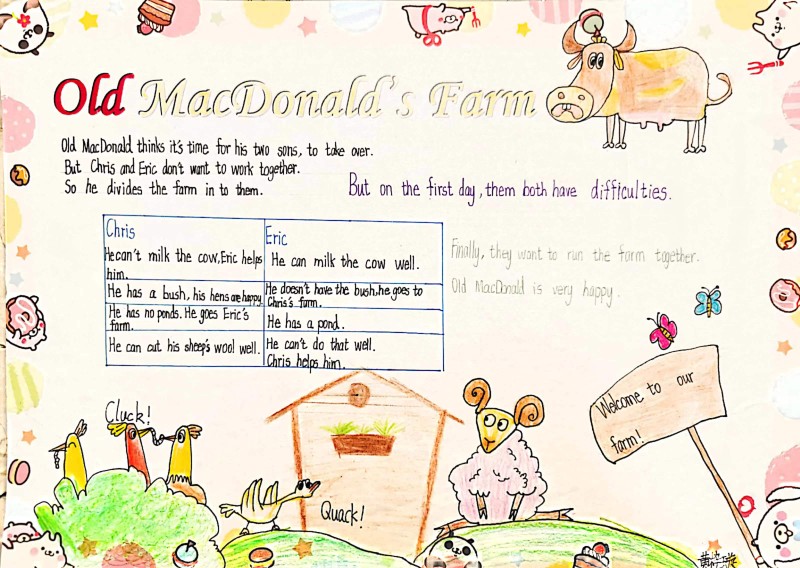 Old MacDonald's Farm
Old MacDonald thinks it's time for his two sons, to take over.
But Chris and Eric don't want to work together.
So he divides the farm in to them.
But on the first day, them both have difficulties.
Chris
Eric
He can't milk the cow, Eric helps
him.
He can milk the cow well.
He has a bush, his hens are happy.
He doesn't have the bush, he goes to
Chris's farm.
He has no ponds. He goes Eric's
farm.
He has a pond.
He can cut his sheep's wool well.
He can't do that well.
Chris helps him.
Finally, they want to run the farm together.
Old MacDonald is very happy.
Cluck!
Quack!
Welcome to our
farm!